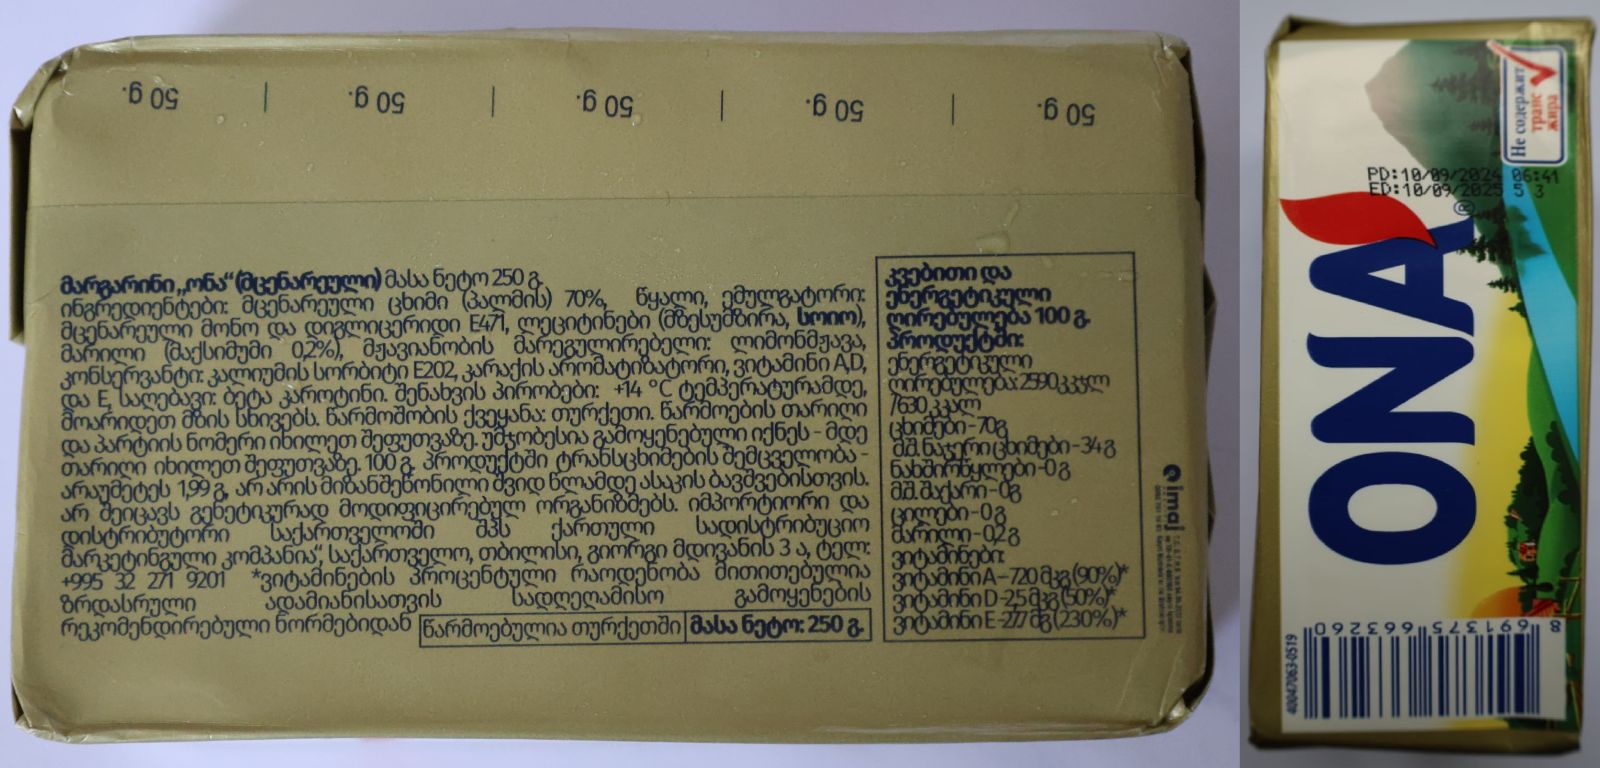 50 g.
50 g.
50 g.
50 g.
50 g.
მარგარინი „ონა“ (მცენარეული) მასა ნეტო 250 გ.
ინგრედიენტები: მცენარეული ცხიმი (პალმის) 70%, წყალი, ემულგატორი:
მცენარეული მონო და დიგლიცერიდი E471, ლეციტინები (მზესუმზირა, სოიო),
მარილი (მაქსიმუმი 0,2%), მჟავიანობის მარეგულირებელი: ლიმონმჟავა,
კონსერვანტი: კალიუმის სორბიტი E202, კარაქის არომატიზატორი, ვიტამინი A,D,
და E, საღებავი: ბეტა კაროტინი. შენახვის პირობები: +14 °C ტემპერატურამდე,
მოარიდეთ მზის სხივებს. წარმოშობის ქვეყანა: თურქეთი. წარმოების თარიღი
და პარტიის ნომერი იხილეთ შეფუთვაზე. უმჯობესია გამოყენებული იქნეს - მდე
თარიღი იხილეთ შეფუთვაზე. 100 გ. პროდუქტში ტრანსცხიმების შემცველობა -
არაუმეტეს 1,99 გ, არ არის მიზანშეწონილი შვიდ წლამდე ასაკის ბავშვებისთვის.
არ შეიცავს გენეტიკურად მოდიფიცირებულ ორგანიზმებს. იმპორტიორი და
დისტრიბუტორი საქართველოში შპს ქართული სადისტრიბუციო
მარკეტინგული კომპანია“, საქართველო, თბილისი, გიორგი მდივანის 3 ა, ტელ:
+995 32 271 9201 *ვიტამინების პროცენტული რაოდენობა მითითებულია
ზრდასრული ადამიანისათვის სადღეღამისო გამოყენების
რეკომენდირებული ნორმებიდან
წარმოებულია თურქეთში
მასა ნეტო: 250 გ.
კვებითი და
ენერგეტიკული
ღირებულება 100 გ.
პროდუქტში:
ენერგეტიკული
ღირებულება: 2590კკჯლ
/630 კკალ
ცხიმები - 70გ
მ.შ. ნაჯერი ცხიმები - 34 გ
ნახშირწყლები - 0 გ
მ.შ. შაქარი - 0გ
ცილები - 0 გ
მარილი - 0,2 გ
ვიტამინები:
ვიტამინი A - 720 მკგ (90%)*
ვიტამინი D - 2,5 მკგ (50%)*
ვიტამინი E - 27,7 მგ (230%)*
imaj
ONA®
Не содержит
транс
жира
PD:10/09/2024 06:41
ED:10/09/2025 5 3
8 691375 663260
40047063-0519